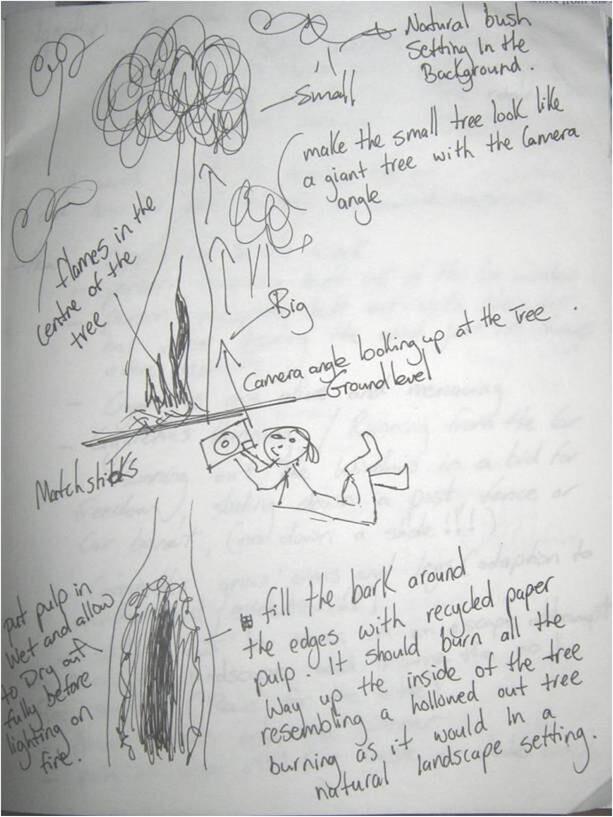 Natural bush
Setting In the
Background.
Small
make the small tree look like
a giant tree with the Camera
angle
flames in the
centre of the
tree
Big
Camera angle looking up at the Tree.
Ground level
Matchsticks
put pulp in
Wet and allow
to Dry out
fully before
lighting on
fire.
fill the bark around
the edges with recycled paper
pulp. It should burn all the
way up the inside of the tree
resembling a hollowed out tree
burning as it would In a
natural landscape setting.